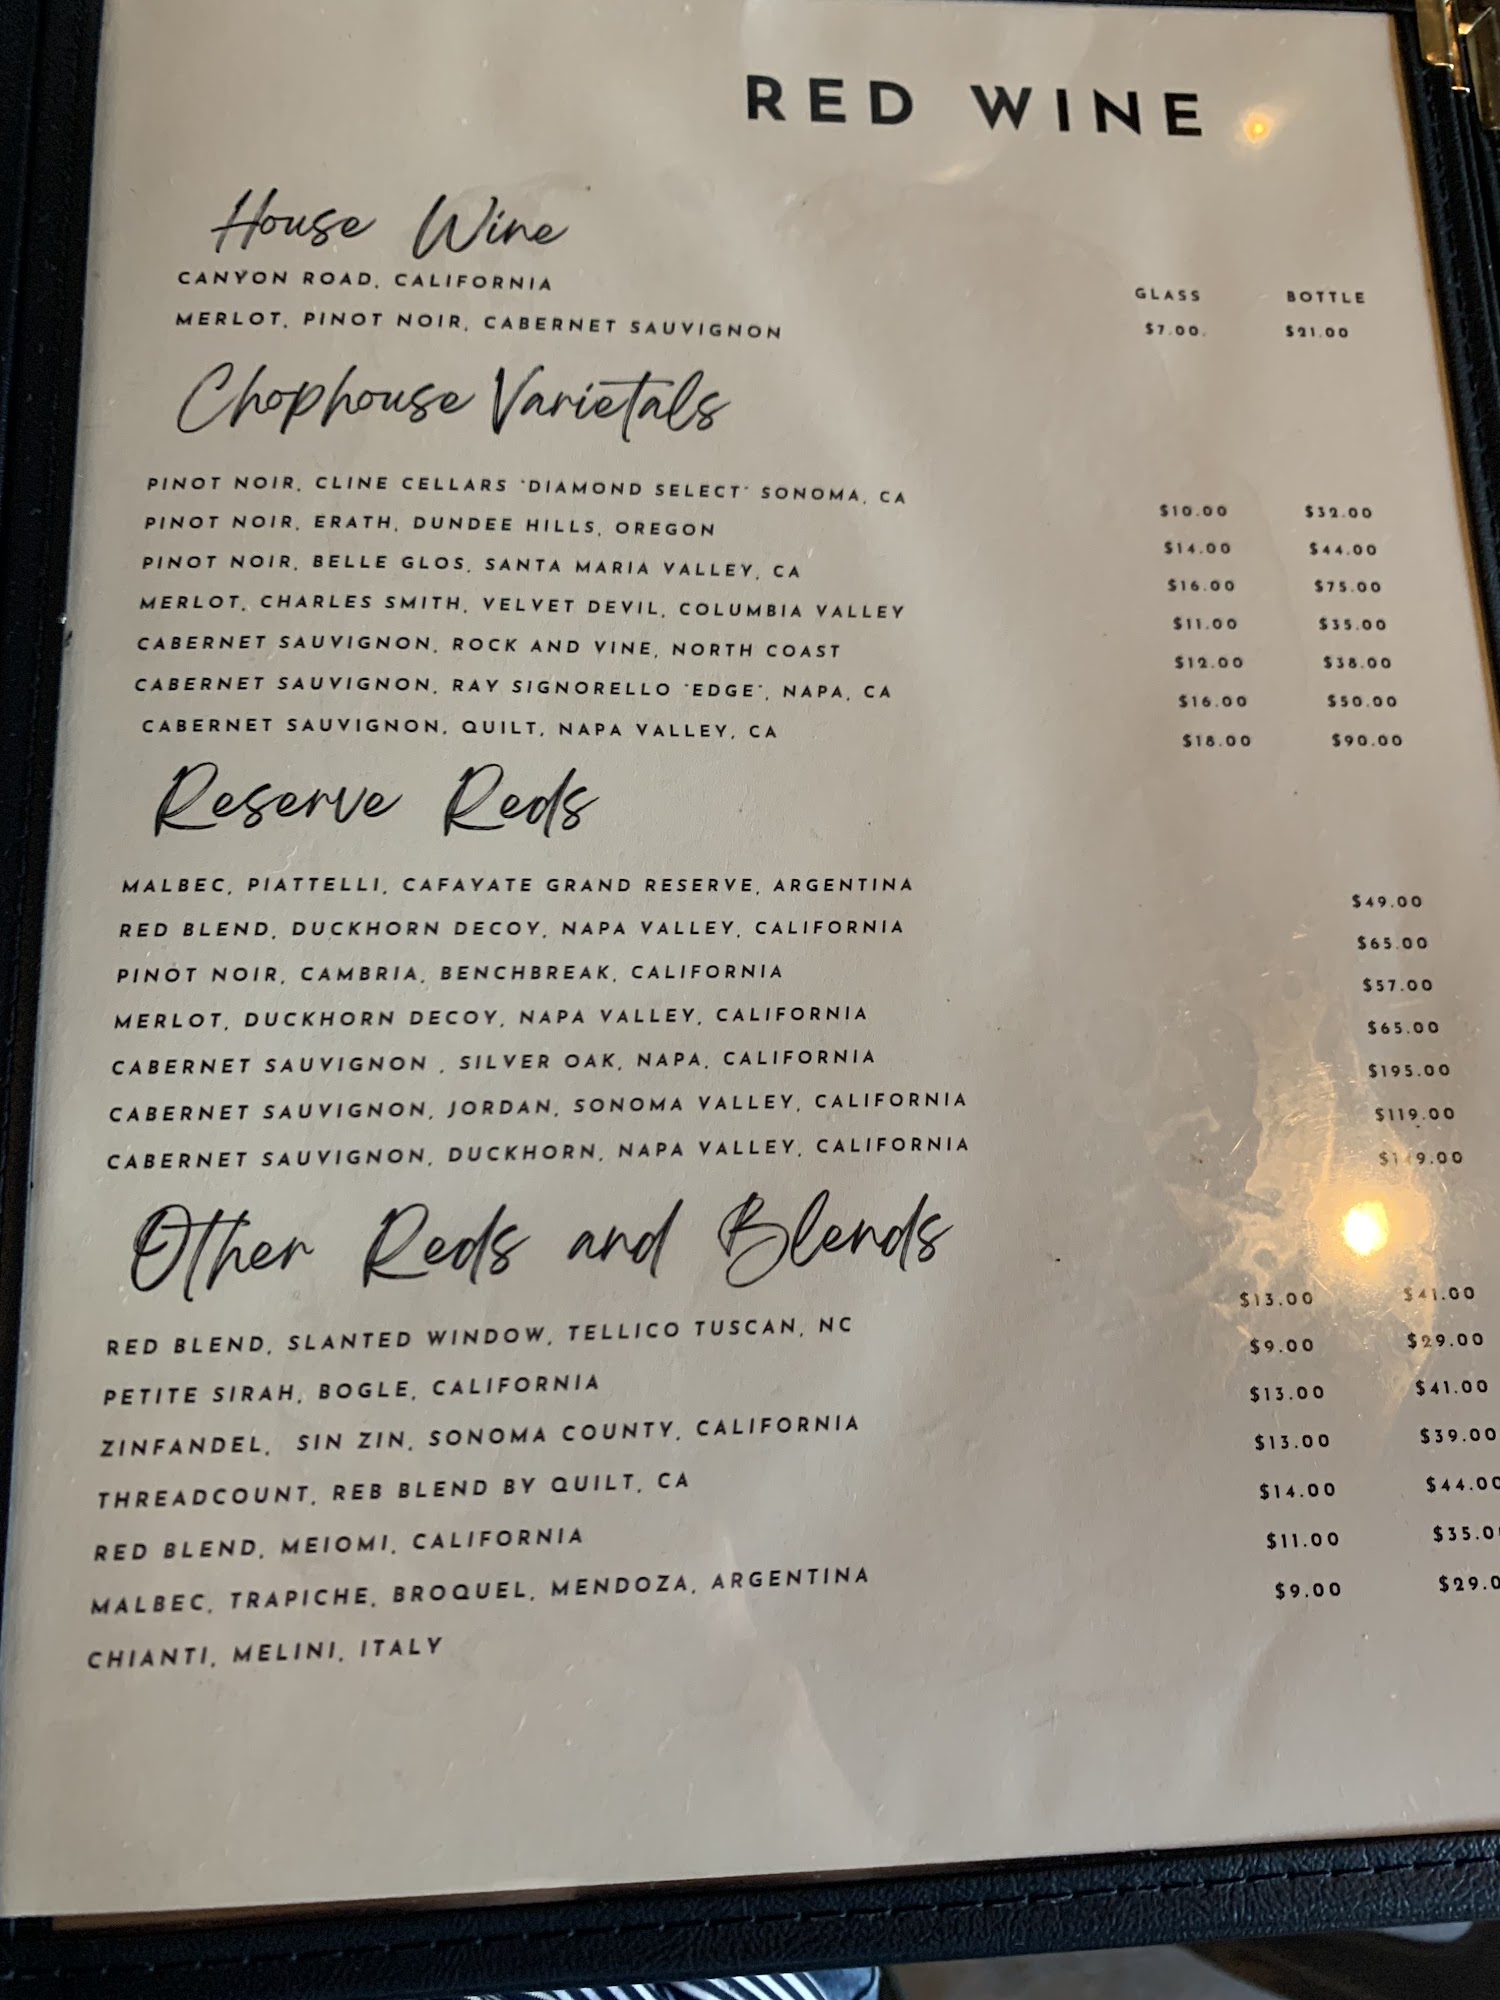 RED WINE
House Wine
CANYON ROAD, CALIFORNIA
GLASS BOTTLE
MERLOT, PINOT NOIR, CABERNET SAUVIGNON $7.00. $21.00
Chophouse Varietals
PINOT NOIR, CLINE CELLARS "DIAMOND SELECT" SONOMA, CA $10.00 $32.00
PINOT NOIR, ERATH, DUNDEE HILLS, OREGON $14.00 $44.00
PINOT NOIR, BELLE GLOS, SANTA MARIA VALLEY, CA $16.00 $75.00
MERLOT, CHARLES SMITH, VELVET DEVIL, COLUMBIA VALLEY $11.00 $35.00
CABERNET SAUVIGNON, ROCK AND VINE, NORTH COAST $12.00 $38.00
CABERNET SAUVIGNON, RAY SIGNORELLO "EDGE", NAPA, CA $16.00 $50.00
CABERNET SAUVIGNON, QUILT, NAPA VALLEY, CA $18.00 $90.00
Reserve Reds
MALBEC, PIATTELLI, CAFAYATE GRAND RESERVE, ARGENTINA $49.00
RED BLEND, DUCKHORN DECOY, NAPA VALLEY, CALIFORNIA $65.00
PINOT NOIR, CAMBRIA, BENCHBREAK, CALIFORNIA $57.00
MERLOT, DUCKHORN DECOY, NAPA VALLEY, CALIFORNIA $65.00
CABERNET SAUVIGNON , SILVER OAK, NAPA, CALIFORNIA $195.00
CABERNET SAUVIGNON, JORDAN, SONOMA VALLEY, CALIFORNIA $119.00
CABERNET SAUVIGNON, DUCKHORN, NAPA VALLEY, CALIFORNIA
Other Reds and Blends
RED BLEND, SLANTED WINDOW, TELLICO TUSCAN, NC $13.00 $41.00
PETITE SIRAH, BOGLE, CALIFORNIA $9.00 $29.00
ZINFANDEL, SIN ZIN, SONOMA COUNTY, CALIFORNIA $13.00 $41.00
THREADCOUNT, REB BLEND BY QUILT, CA $13.00 $39.00
RED BLEND, MEIOMI, CALIFORNIA $14.00 $44.00
MALBEC, TRAPICHE, BROQUEL, MENDOZA, ARGENTINA $11.00 $35.0
CHIANTI, MELINI, ITALY $9.00 $29.0